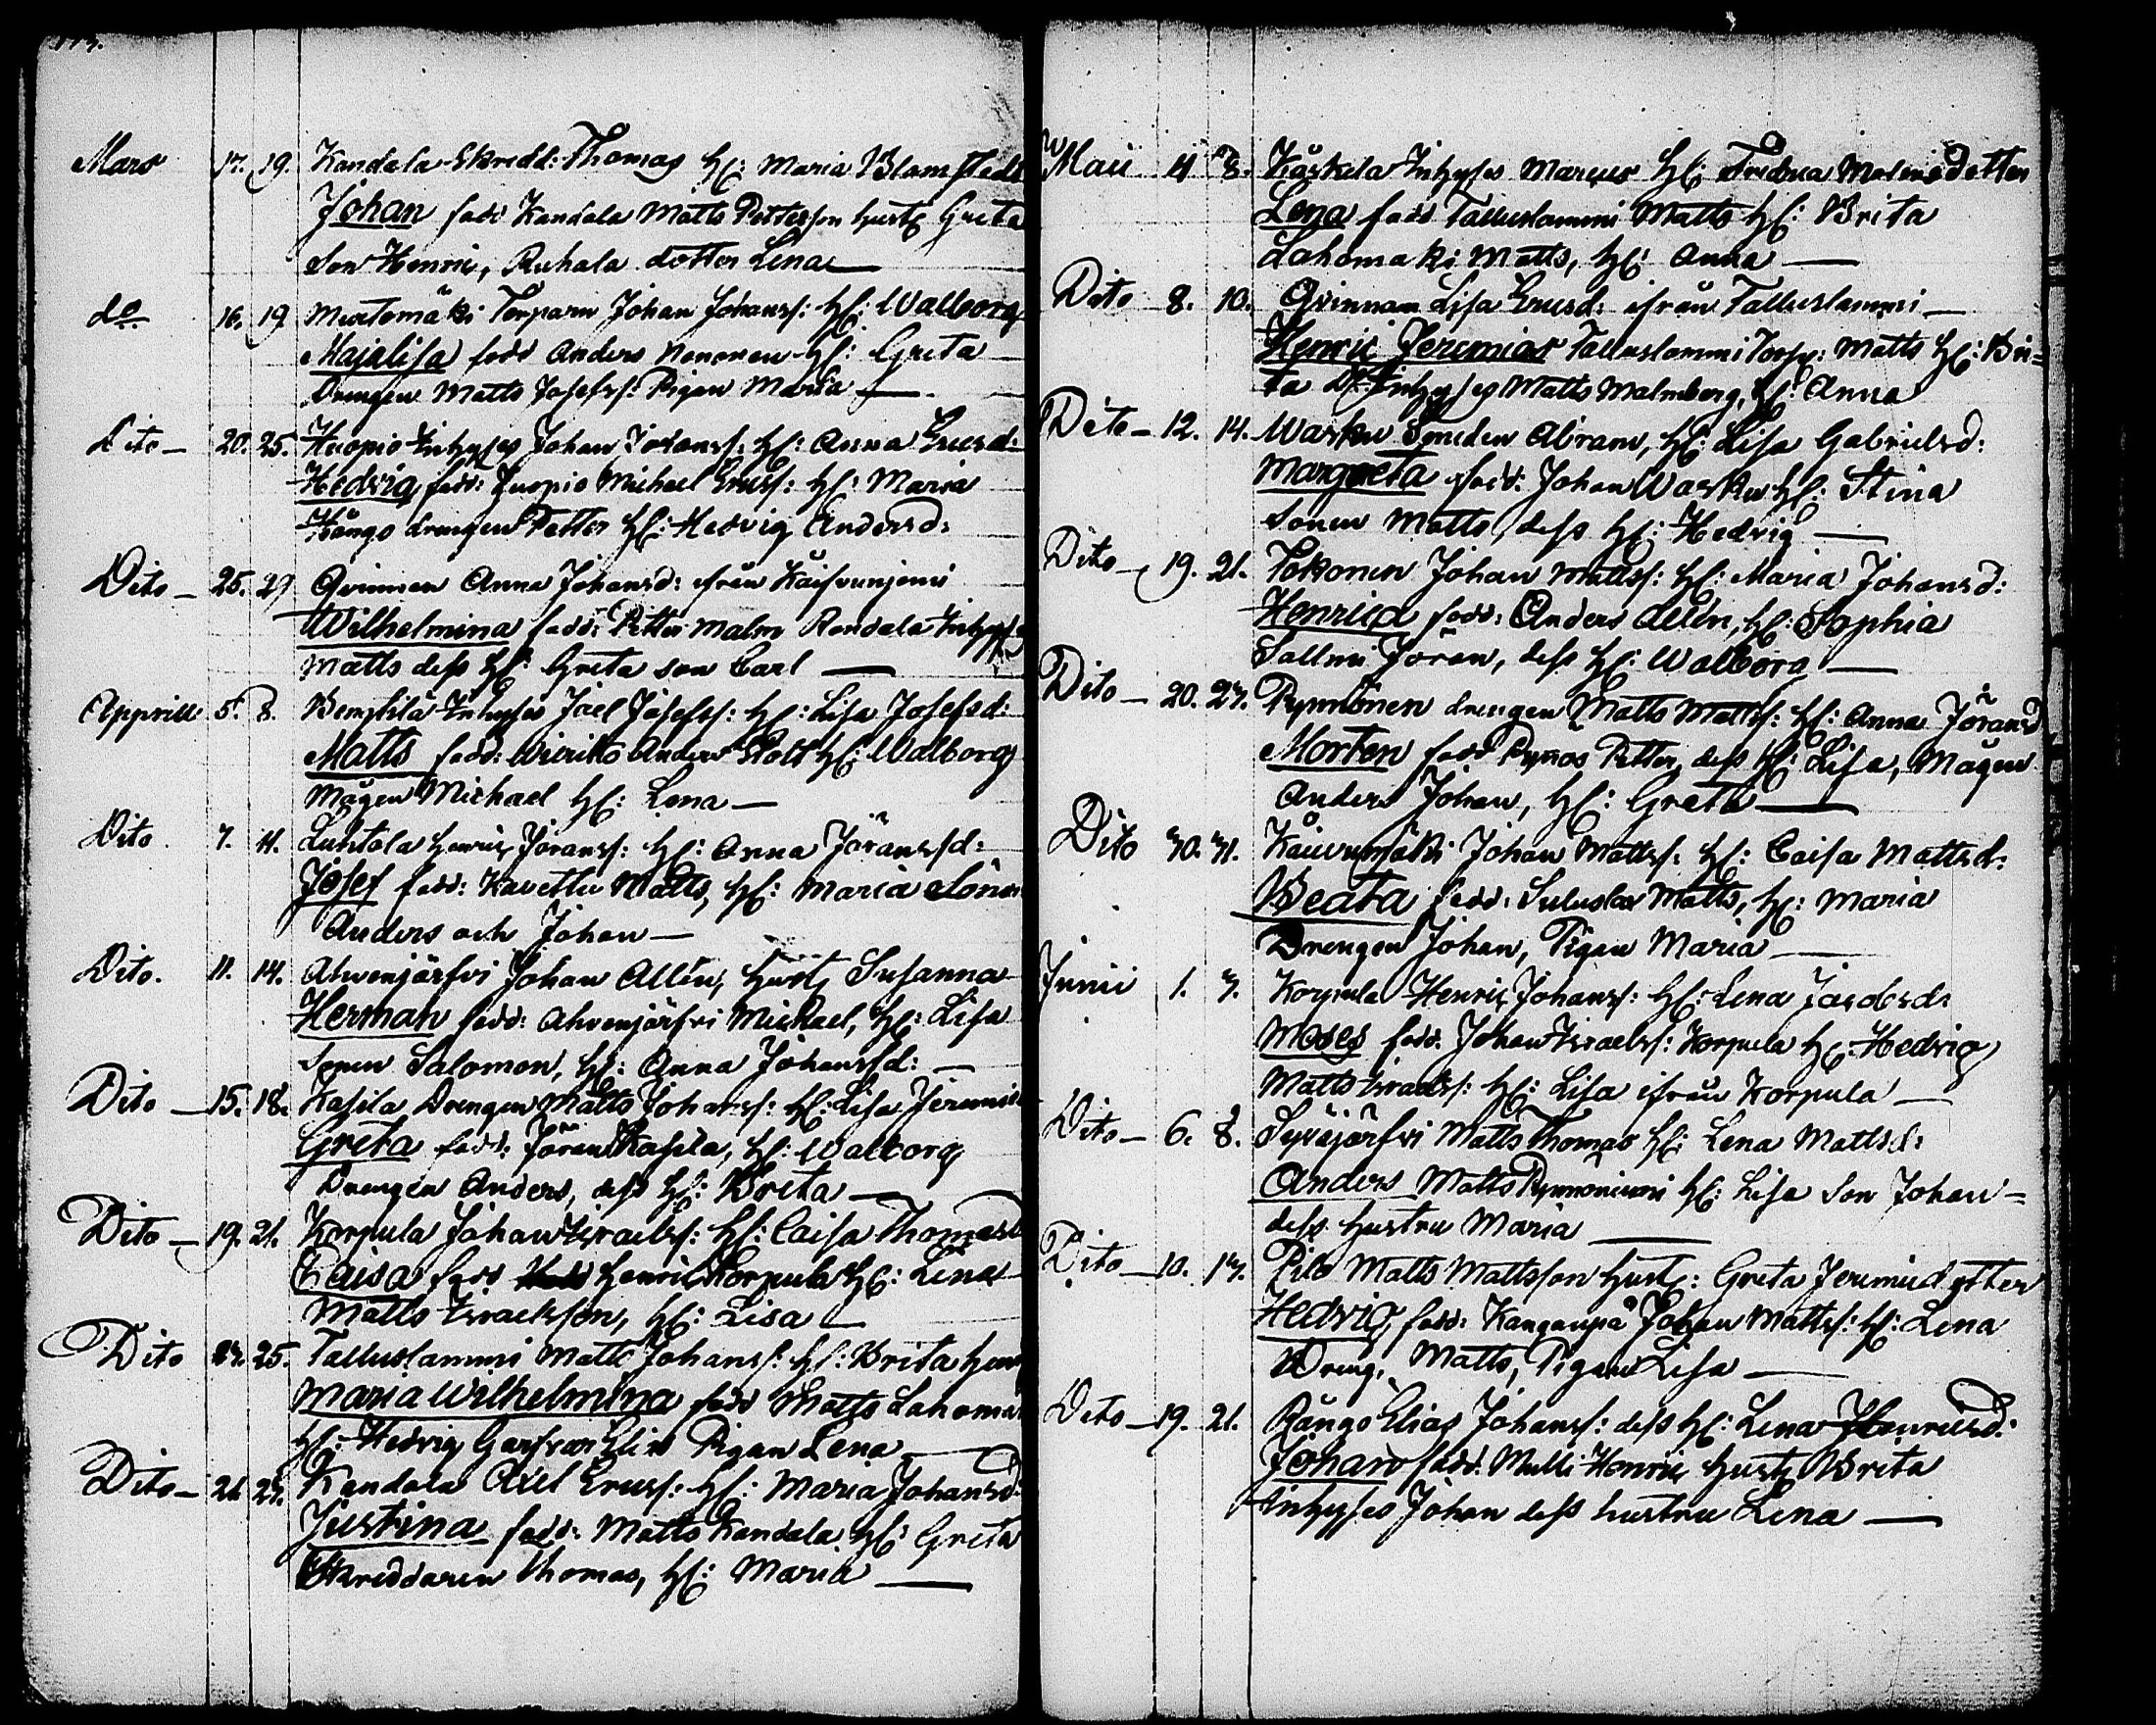 Mars 17. 19. Kandala Skredd: Thomas H[: Maria Blomstedt
Johan fadd Kandala Matts Pettersson hust[ Greta
Son Henric, Ruhala dotter Lena
do 16. 19 Murtomäki Torparn Johan Johanss: H[: Walborg
Majalisa fadd Anders Nenonen H[: Greta
Drengen Matts Josefss: Pigan Maria
Dito 20. 25. Huopio Inhyses Johan Johanss: H[: Anna Ericsd:
Hedvig fadd: Michael Ericss: H[: Maria
Kångs drengen Petter H[: Hedvig Andersd:
Dito 25. 29 Qvinnan Anna Johansd: ifrån
Wilhelmina fadd: Petter Malm Inhyses
Matts dess H[: Greta son Carl
Appriill 5. 8. Inhyses Joel Josefss: H[: Lisa Josefsd:
Matts fadd: Anders Stolt H[: Walborg
Mågen Michael H[: Lena
Dito 7. 11. Luhtala Henric Jöranss: H[: Anna Jöranssd:
Josef fadd: Kavettu Matts, H[: Maria Söner
Anders och Johan
Dito. 11. 14. Ahvenjärfvi Johan Allén, hust[ Susanna
Herman fadd: Ahvenjärfvi Michael, H[: Lisa
Sonen Salomon, H[: Anna Johanssd:
Dito 15. 18. Kasila Drengen Matts Johanss: H[: Lisa
Greta fadd: Jöran Kasila, H[: Walborg
Drengen Anders, dess H[: Brita
Dito 19. 21. Korpula Johan Israelss: H[: Caisa Thomasd
Caisa fadd Henric Korpula H[: Lena
Matts Israelsson, H[: Lisa
Dito 23. 25. Talluslammi Matts Johanss: H[: Brita
Maria Wilhelmina fadd Matts Lahoma
H[: Hedvig Pigan Lena
Dito 21. 27. Kandala Axel Ericss: H[: Maria Johansd:
Justina fadd: Matts Kandala H[: Greta
Skreddaren Thomas, H[: Maria
Maii 4 8. Inhyses Marcus H[: dotter
Lena fadd Talluslammi Matts H[: Brita
Lahomaki Matts, H[: Anna
Dito 8. 10. Qvinnan Lisa Ericsd: ifrån Talluslammi
Henric Jeremias Talluslammi Torp: Matts H[: Bri=
ta Inhyses Matts Malmberg, H[: Anna
Dito 12. 14. Warku Smeden Abram, H[: Lisa Gabrielsd:
Margreta fadd: Johan Warku H[: Stina
Sonen Matts, dess H[: Hedvig
Dito 19. 21. Tokonen Johan Mattss: H[: Maria Johansd:
Henrica fadd: Anders Allén, H[: Sophia
Sallmi Jöran, dess H[: Walborg
Dito 20. 27. Pynnönen drengen Matts Mattss: H[: Anna Jöransd
Morten fadd Petter, dess H[: Lisa, Mågen
Anders Johan, H[: Greta
Dito 30. 31. Johan Mattss: H[: Caisa Mattsd:
Beata fadd: Matts, H[: Maria
Drengen Johan, Pigan Maria
Junii 1. 3. Korpula Henric Johanss: H[: Lena Jacobsd:
Moses fadd: Johan Israelss: Korpula H[: Hedvig
Matts Israelss: H[: Lisa ifrån Korpula
Dito 6. 8. Syväjärfvi Matts Thomas H[: Lena Mattsd:
Anders Matts H[: Lisa Son Johan =
dess hustru Maria
Dito 10. 13. Pilo Matts Mattsson hust[: Greta Jeremiedytter
Hedvig fadd: Kangaupå Johan Mattss: H[: Lena
Dreng: Matts, Pigan Lisa
Dito 19. 21. Rångs Elias Johanss: dess H[: Lena Henricsd:
Johan fadd: Mulli Henric hust[ Brita
Inhyses Johan dess hustru Lena